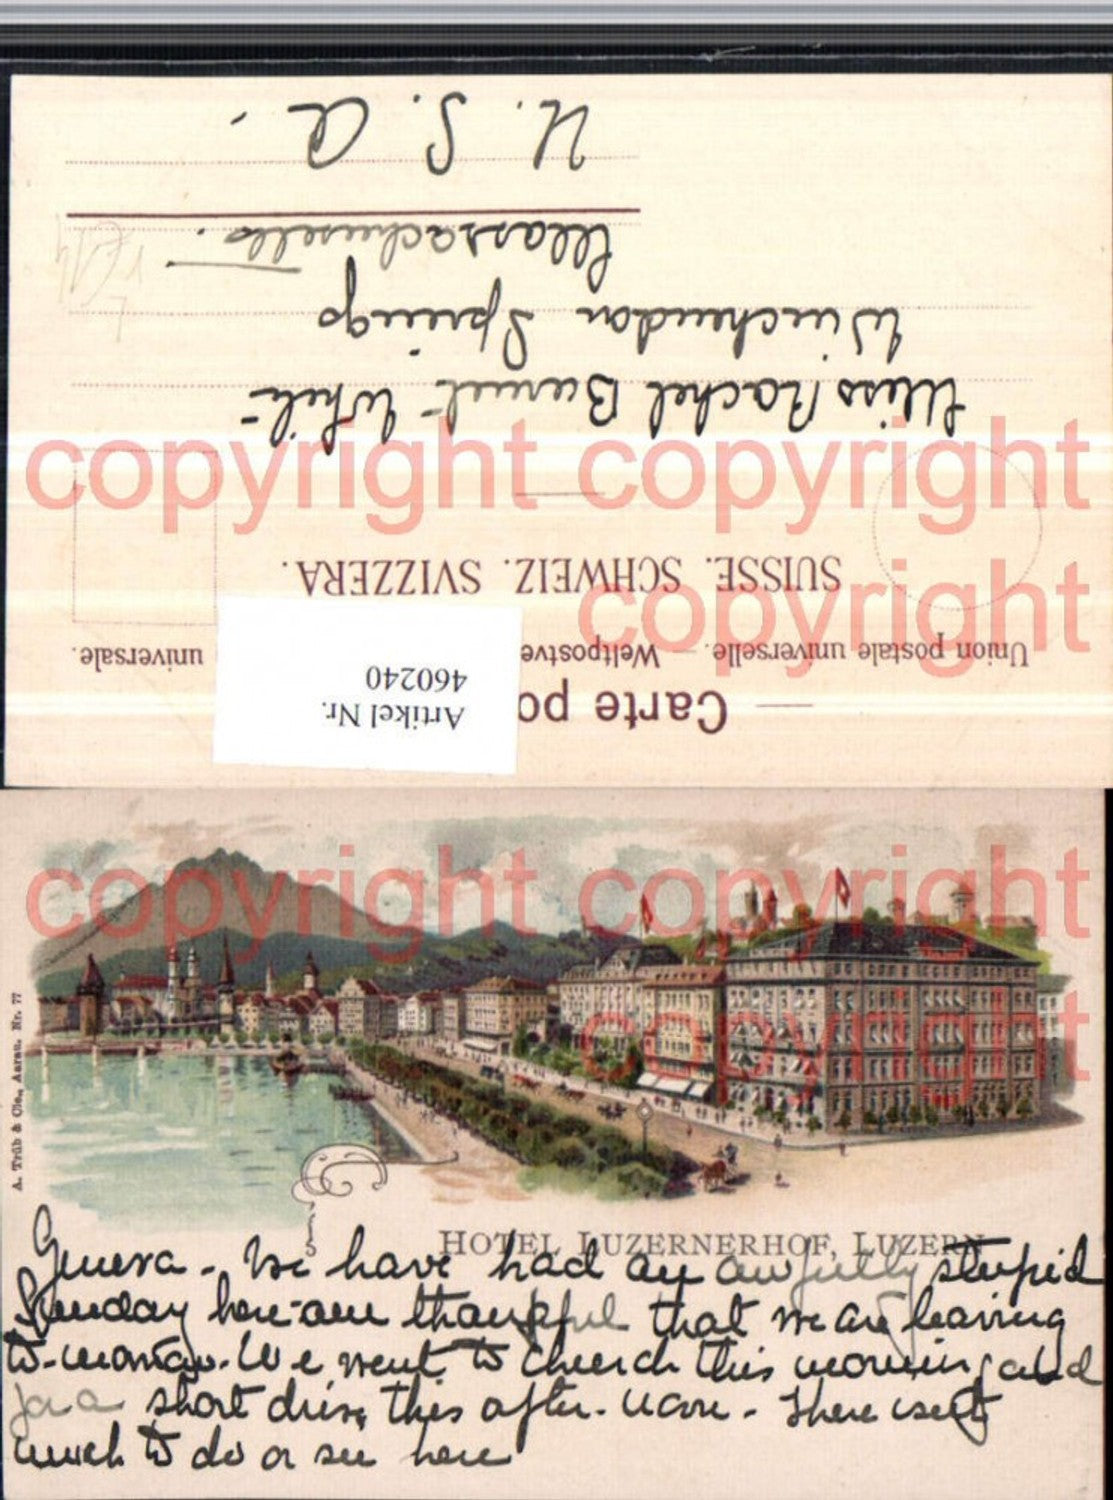 U. S. A.
Massachusetts.
Winchendon Springs
Miss Rachel Burnet White
copyright copyright
SUISSE. SCHWEIZ. SVIZZERA.
copyright
Union postale universelle. — Weltpostve universale.
Carte po
Artikel Nr.
460240
copyright copyright
copyright
A. Trüb & Cie., Aarau. Nr. 77
HOTEL LUZERNERHOF, LUZERN
Geneva - We have had an awfully stupid
Sunday here are thankful that we are leaving
to-morrow. We went to church this morning and
for a short drive this after-noon. There isn't
much to do or see here